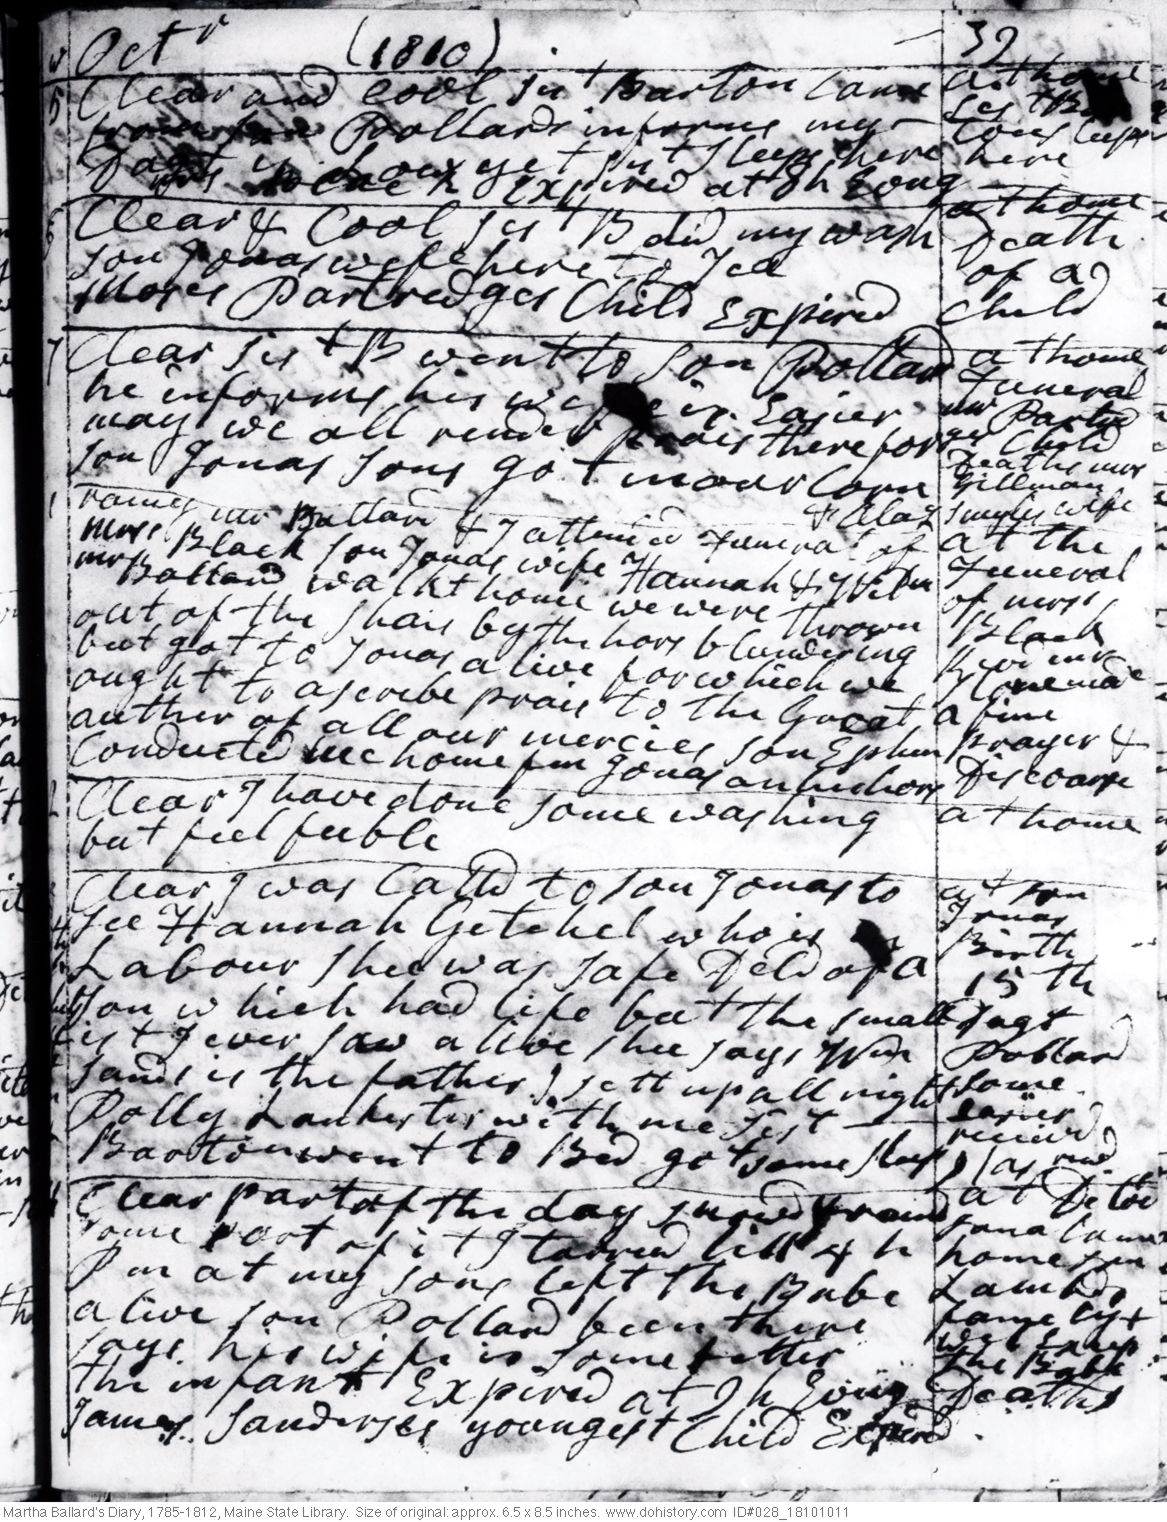 Octr (1810) 39
Clear and Cool Sist Barton Came
from son Pollards informs my
Dagt is Low yet Sist Sleeps here
Expired at 8 h Evng
at home
here
6 Clear & Cool Sist B did my wash
son Jonas wife here to Tea
Moses Partredges Child Expired
at home
Death
of a
Child
7 Clear Sist B went to Son Pollard
he informs his wife is Easier
may we all render prais there for
son Jonas sons got in our Corn
at home
Funeral
mr Partrd
ges Child
Deaths mrs
Gillman
wife
mr Ballard & I attended Funeral of
mrs Black son Jonas wife Hannah & Wm
Ballard walkt home we were thrown
out of the Shais by the hors blundering
but got to Jonas alive for which we
ought to ascribe prais to the Great
author of all our mercies son Ephm
Conducted me home from Jonas on his hors
at the
Funeral
of mrs
Black
Revd mr
Stone made
a fine
Prayer &
Discoarse
Clear I have done some washing
but feel feeble
at home
Clear I was Calld to son Jonas to
see Hannah Getchel who is
Labour shee was safe Deld of a
son which had life but the small
ist I ever saw alive shee says Wm
Sands is the father I sett up all night
Polly Lankester with me Sist
Barton went to Bed got some sleep
at son
Jonas
Birth
15th
Dagt
Pollard
some
easier
receivd
Clear part of the day snowd & raind
some part of it I tarried till 4 h
Pm at my sons left the Babe
alive son Pollard been there
says his wife is some better
the infant Expired at 9 h Evng
James Sanderses youngest Child Expired
at Ditoe
home
the Babe
Deaths
Martha Ballard's Diary, 1785-1812, Maine State Library. Size of original: approx. 6.5 x 8.5 inches. www.dohistory.com ID#028_18101011